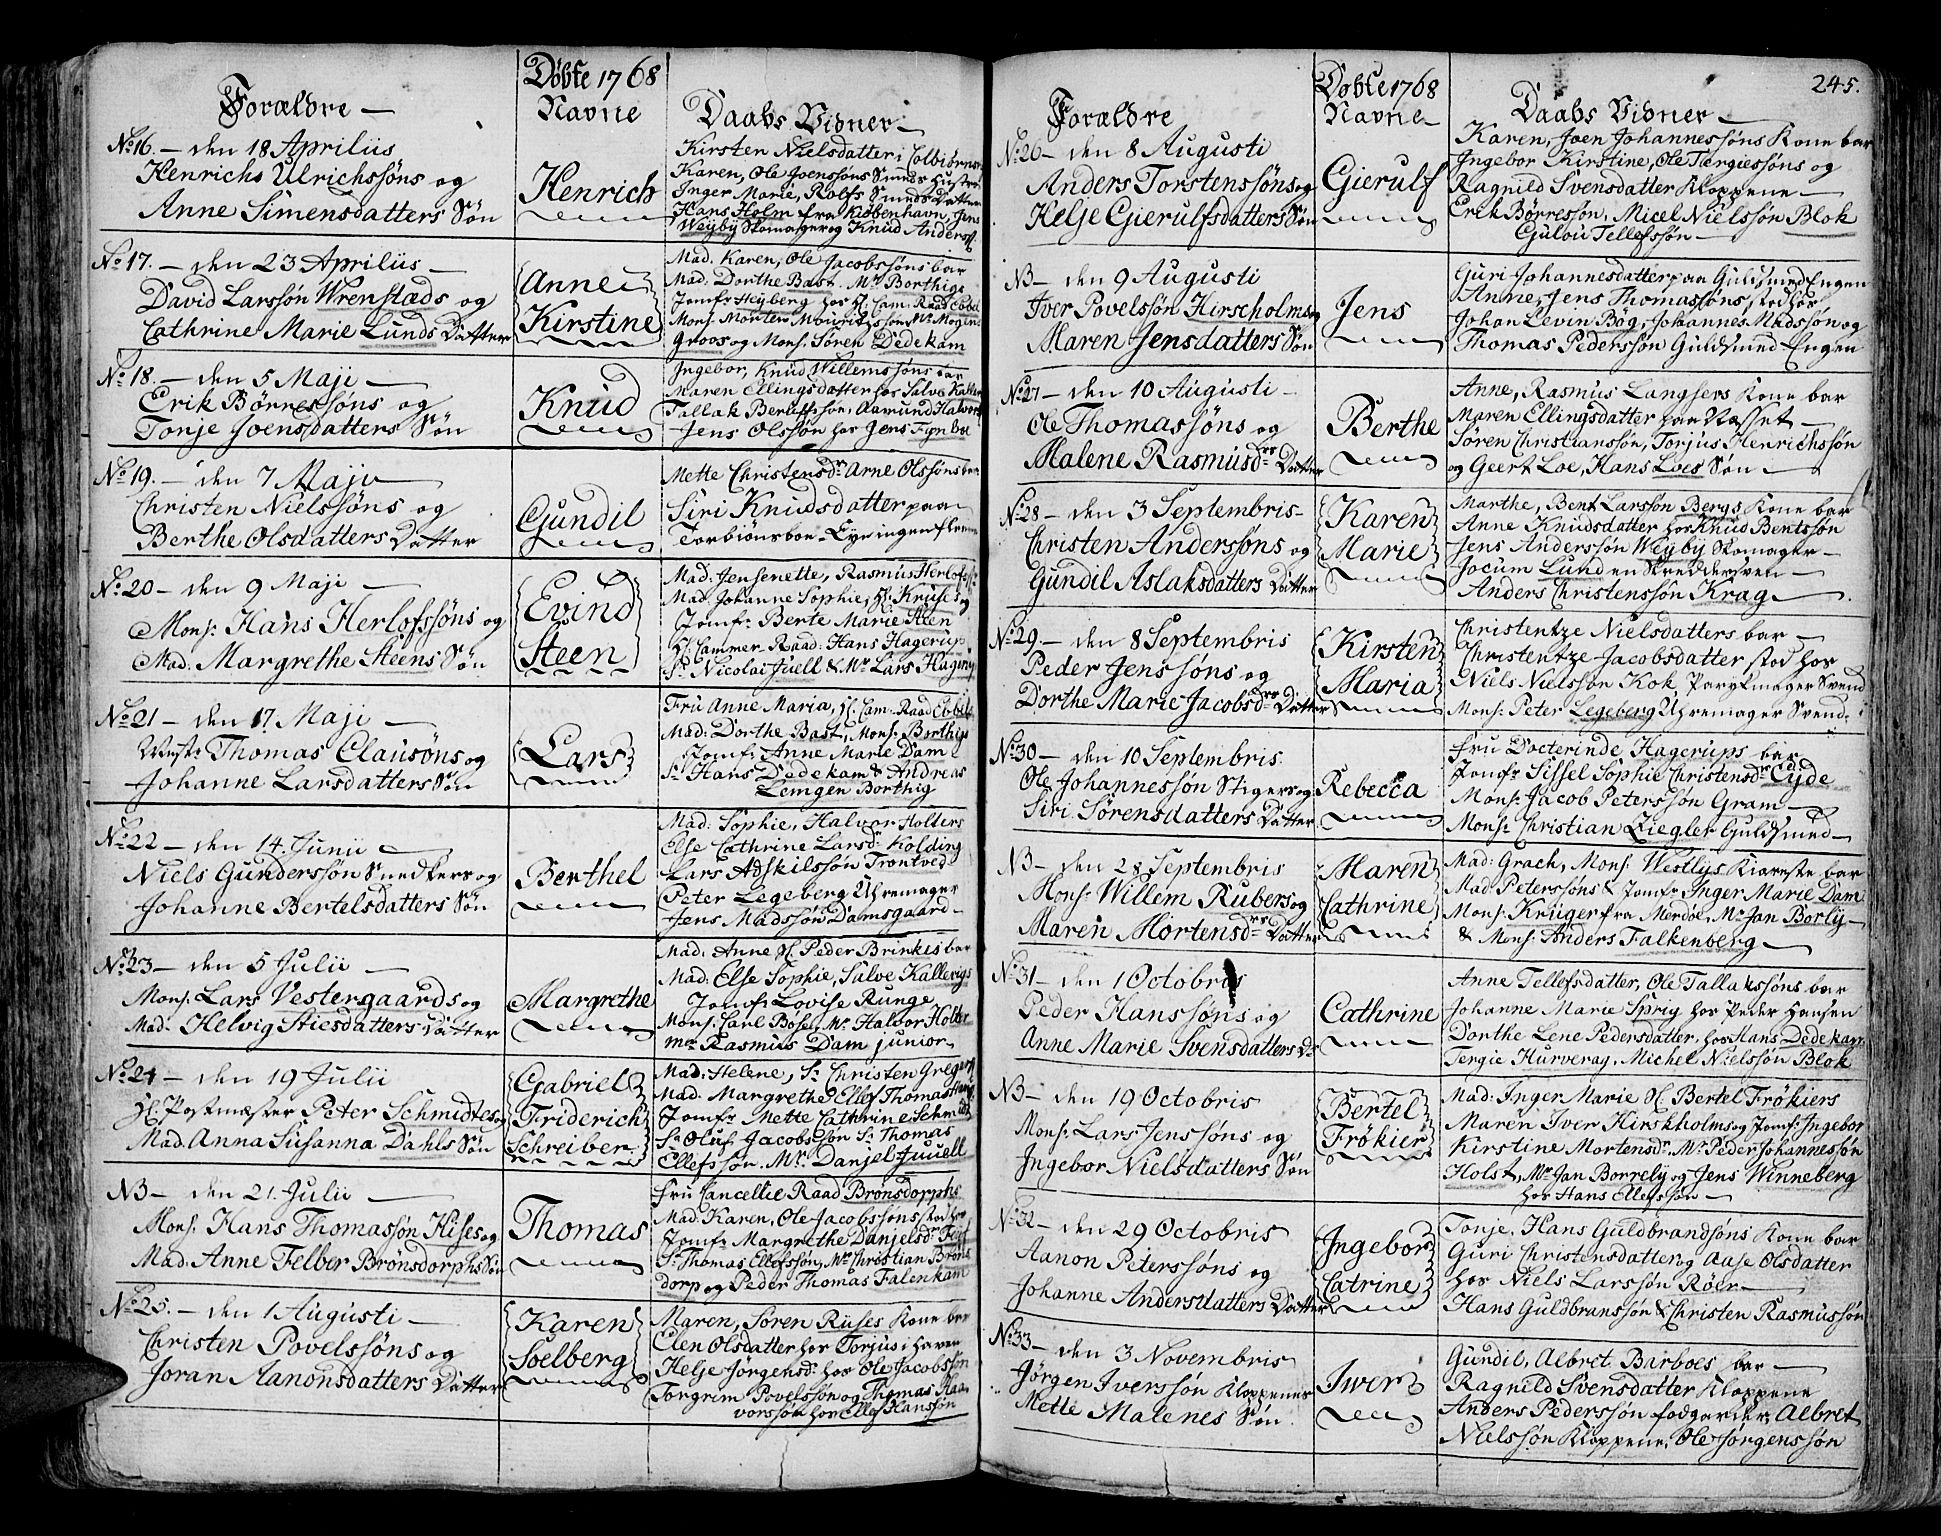 Døbte 1768
Forældre — Navne Daabs Vidner —
No 16. — den 18 Aprilis
Henrichs Ulrichssøns og
Anne Simensdatters Søn
Henrich
Kirsten Nielsdatter i Colbiørns
Karen, Ole Joenssøns Smeds Hustrue
Inger Marie, Rolfs Smeds Datter
Hans Holm fra Kiøbenhavn, Jens
Weyby Skomager og Knud Anders
No 17. — den 23 Aprilis —
David Larssøn Wrenstads og
Cathrine Marie Lunds Datter
Anne
Kirstine
Mad. Karen, Ole Jacobssøns bar
Mad. Dorthe Bast. Mr Borthigs
Jomfr Heyberg hos H. Cam. Raad Ebbel
Mons. Morten Mouritssøn Mr Mogens
Groos og Mons. Søren Dedekam
No 18. — den 5 Maji —
Erik Børressøns og
Tonje Joensdatters Søn
Knud
Ingebor, Knud Willemssøns bar
Maren Ellingsdatter hos Salve Kalle
Tallak Berlefssøn, Aamund Halvors
Jens Olssøn hos Jens Fynboe
No 19. — den 7 Maji —
Christen Nielssøns og
Berthe Olsdatters Datter
Gundil
Mette Christensdr Arne Olssøns bar
Siri Knudsdatter paa
Torbiønsboe — Eyningen flere
No 20 — den 9 Maji —
Mons. Hans Herlofssøns og
Mad. Margrethe Steens Søn
Evind
Steen
Mad: Jensenette, Rasmus Herlofs
Mad: Johanne Sophie, H. Kruses og
Jomfr Berte Marie Steen
H. Cammer Raad: Hans Hagerup
Sr Nicolai Juell & Mr Lars Hagerup
No 21 — den 17 Maji —
Thomas Clausøns og
Johanne Larsdatters Søn
Lars
Fru Anne Maria, H. Cam: Raad Ebbels
Mad: Dorthe Bast, Mons. Borthigs
Jomfr Anne Marie Dam
Sr Hans Dedekam & Andreas
Lemgen Borthig
No 22 — den 14 Junii —
Niels Gunderssøn Snedkers og
Johanne Bertelsdatters Søn
Berthel
Mad: Sophie, Halvor Holters
Else Cathrine Larsdr Kolding
Lars Adskilssøn Trontved
Peter Legeberg Uhremager
Jens Madssøn Damsgaard —
No 23 — den 5 Julii —
Mons. Lars Vestergaards og
Mad. Helvig Stiesdatters Datter
Margrethe
Mad: Anne H. Peder Brinkes bar
Mad. Else Sophie, Salve Kallevigs
Jomfr Lovise Runge
Mons. Carl Bøse, Mr Halvor Holter
mr Rasmus Dam junior
No 24 — den 19 Julii
H. Postmæster Peter Schmidtes og
Mad. Anna Susanna Dahls Søn
Gabriel
Friderich
Schreiber
Mad: Helene, Sr Christen Gregers
Mad: Margrethe Ellef Thomas
Jomfr Mette Cathrine Schmidt
Sr Oluf Jacobssøn Sr Thomas
Ellefssøn. Mr. Danjel Juuell
NB — den 21. Julii —
Mons. Hans Thomassøn Hises og
Mad. Anne Felber Brønsdorphs Søn
Thomas
Fru Cancellie Raad Brønsdorphs
Mad. Karen, Ole Jacobssøns stod hos
Jomfr Margrethe Danjelsdr
Sr Thomas Ellefssøn, Mr Christian Brøns
dorp og Peder Thomas Falenkam
No 25. — den 1 Augusti —
Christen Povelssøns og
Joran Aanonsdatters Datter
Karen
Soelberg
Maren, Søren Ruses Kone bar
Elen Olsdatter hos Torjus i Haven
Helje Jørgensdr hos Ole Jacobssøn
Torgrim Povelssøn og Thomas Haa
vorssøn hos Ellef Hanssøn
245.
Døbte 1768
Forældre Navne — Daabs Vidner —
No 26 — den 8 Augusti
Anders Torstenssøns og
Helje Gierulfsdatters Søn
Gierulf
Karen, Joen Johannessøns Kone bar
Ingebor Kirstine, Ole Tergiessøns og
Ragnild Svensdatter Kloppene —
Erik Børressøn, Micel Nielssøn Blok
Gulou Tellefssøn —
NB — den 9 Augusti
Iver Povelssøn Hirscholms og
Maren Jensdatters Søn
Jens
Guri Johannesdatter paa Guldsmed Engen
Anne, Jens Thomassøns, stod hos
Johan Levin Bøg, Johannes Madssøn og
Thomas Pederssøn Guldsmed-Engen
No 27 — den 10 Augusti —
Ole Thomassøns og
Malene Rasmusdrs Datter
Berthe
Anne, Rasmus Langfers Kone bar
Maren Ellingsdatter paa Næsset —
Søren Christianssøn, Torjus Henrichssøn
og Geert Loe, Hans Loes Søn —
No 28 — den 3 Septembris —
Christen Anderssøns og
Gundil Aslaksdatters Datter
Karen
Marie
Marthe, Bent Larssøn Bergs Kone bar
Anne Knudsdatter hos Knud Bentssøn
Jens Anderssøn Weyby Skomager —
Jocum Lund en Skreddersven —
Anders Christenssøn Krag —
No 29. — den 8 Septembris
Peder Jenssøns og
Dorthe Marie Jacobsdrs Datter
Kirsten
Maria
Christentze Nielsdatters bar —
Christentze Jacobsdatter stod hos
Niels Nielssøn Kok, Parykmager Svend
Mons. Peter Legeberg Uhremager Svend.
No 30 — den 10 Septembris
Ole Johannessøn Stigers og
Siri Sørensdatters Datter
Rebecca
Fru Docterinde Hagerups bar
Jomfr Sissel Sophie Christensdr Eyde
Mons. Jacob Peterssøn Gram —
Mons. Christian Ziegler Guldsmed —
NB — den 28 Septembris
Mons. Willem Rubers og
Maren Mortensdrs Datter
Maren
Cathrine
Mad: Grach, Mons. Westlys Kiæreste bar
Mad Peterssøns & Jomfr Inger Marie Dam
Mons. Krüger fra Merdøe, Mr Jan Borly —
& Mons. Anders Falkenberg —
No 31 — den 1 Octobris
Peder Hanssøns og
Anne Marie Svensdatters Dr
Cathrine
Anne Tellefsdatter, Ole Tallakssøns bar
Johanne Marie Sprig hos Peder Hansen
Dorthe Lene Pedersdatter, hos Hans Dedekam
Tergie Hurveray, Michel Nielssøn Blok
NB — den 19 Octobris
Mons. Lars Jenssøns og
Ingebor Nielsdatters Søn
Bertel
Frøkier
Mad: Inger Marie H. Bertel Frøkiers
Maren Iver Hirskholms og Jomfr Ingebor
Kirstine Mortensdr. Mr Peder Johannessøn
Holst, Mr Jan Borrely og Jens Winneberg
hos Hans Ellefssøn —
No 32 — den 29 Octobris
Aanon Piterssøns og
Johanne Andersdatters Datter
Ingebor
Catrine
Tonje, Hans Guldbrandsøns Kone bar
Guri Christensdatter og Aase Olsdatter
hos Niels Larssøn Røer —
Hans Guldbranssøn & Christen Rasmussøn
No 33 — den 3 Novembris
Jørgen Iverssøn Kloppenes
Mette Malenes Søn.
Iwer
Gundil, Albret Barboes bar —
Ragnild Svensdatter Kloppene
Anders Pederssøn fodgarder, Albret
Nielssøn Kloppene, Ole Jørgenssøn